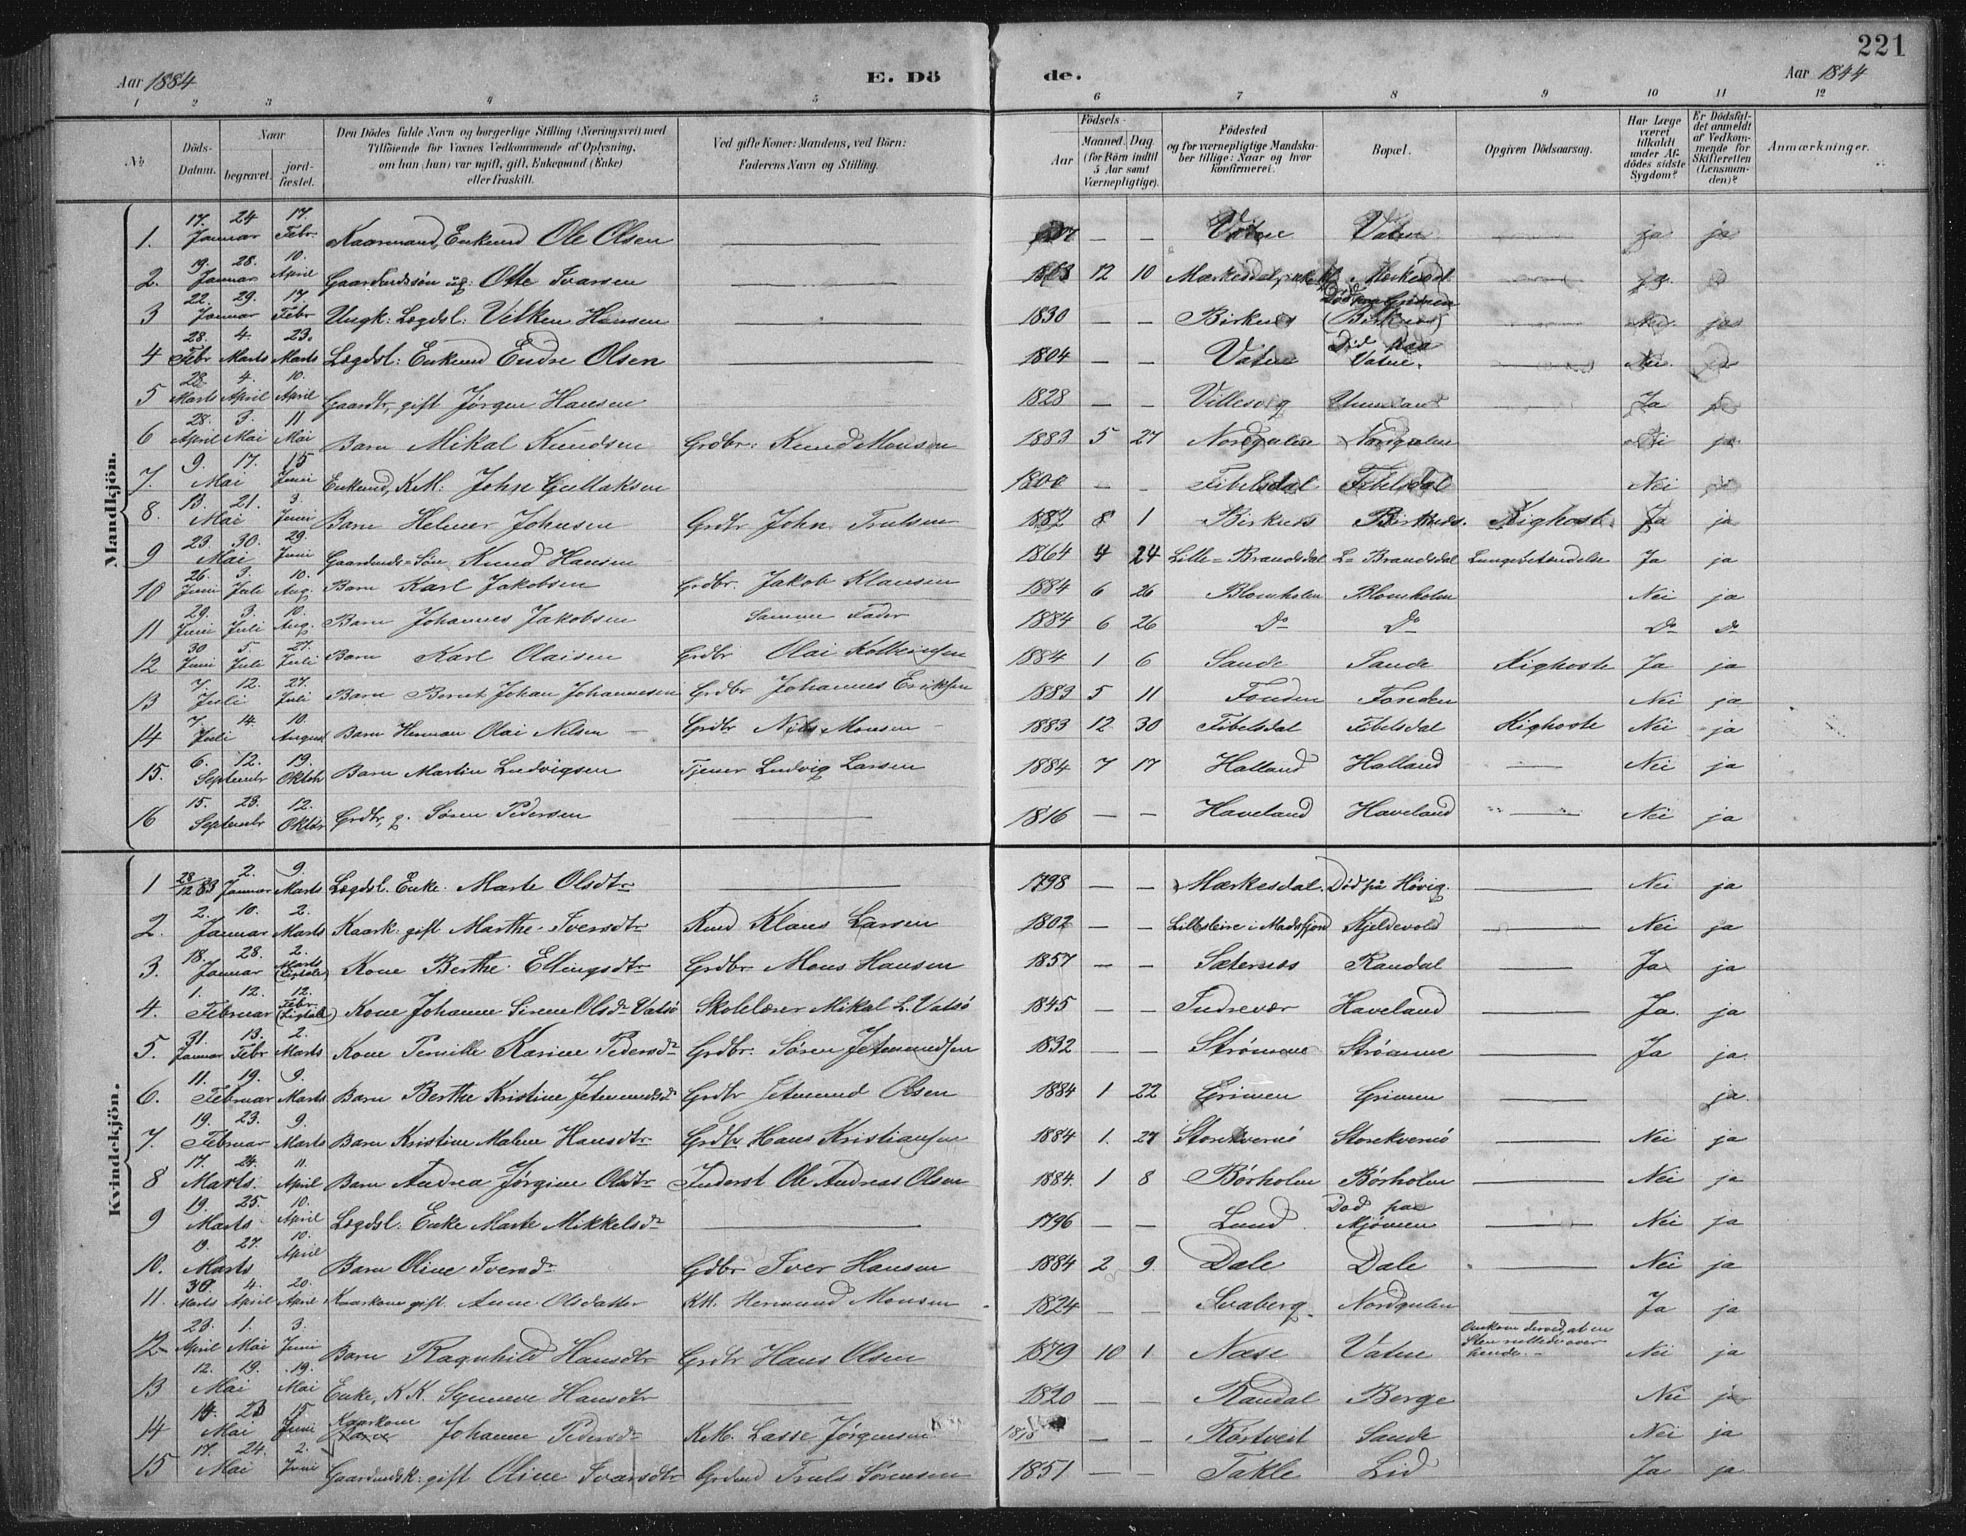 221
Aar 1884 E. Dö de. Aar 1844
1 2 3 4 5 6 7 8 9 10 11 12
No Döds-Datum. Naar begravet. jordfæstet. Den Dödes fulde Navn og borgerlige Stilling (Næringsvei) med Tilföiende for Voxnes Vedkommende af Oplysning, om han (hun) var ugift, gift, Enkemand (Enke) eller fraskilt. Ved gifte Koner: Mandens, ved Börn: Faderens Navn og Stilling. Födsels- Aar Maaned. Dag (for Börn indtil 5 Aar samt Værnepligtige). Födested og for værnepligtige Mandskaber tillige: Naar og hvor konfirmeret. Bopæl. Opgiven Dödsaarsag. Har Læge været tilkaldt under Afdödes sidste Sygdom? Er Dödsfaldet anmeldt af Vedkommende for Skifteretten (Lensmanden)? Anmærkninger.
Mandkjön.
1. 17. Januar 24 17. Febr. Kaarmand, Enkemd Ole Olsen — — Vatne Vatne ja ja
2. 19. Januar 28. 10. April Gaardmdssøn ug. Otte Ivarsen 1863 12 10 Mærkesdal
3 22. Januar 29. 17. Febr Ungk: Lægdsl: Vilken Hansen 1830 — — Birknes (Birknes) Nei ja
4 28. Febr 4. Marts 23. Marts Lægdsl: Enkemd Endre Olsen 1804 — — Vatne Død paa Vatne. Nei
5 28. Marts 4. April 10. April Gaardbr, gift Jørgen Hansen 1828 — — Ja
6 28. April 3. Mai 11 Mai Barn Mikal Knudsen Grdbr: Knud Monsen 1883 5 27 Nordgulen Nordgulen Nei ja
7 9. Mai 17. 15 Juni Enkemd, K.M. John 1800 — — Fibelsdal Fibelsdal Nei
8. 13. Mai 21. 3. Juni Barn Helmer Johnsen Grdbr John Trulsen 1882 8 1 Birknes Birknes. Kighoste Ja ja
9 23. Mai 30. 29. Juni Gaardmds-Søn Knud Hansen 1864 4 24 Lille-Brandsdal L-Brandsdal Lungebetændelse Ja ja
10 26. Juni 3. Juli 10. Aug. Barn Karl Jakobsen Grdbr. Jakob Klausen 1884 6 26 Blomholm Blomholm Nei ja
11 29. Juni 3. Juli 10. Aug. Barn Johannes Jakobsen Samme Fader 1884 6 26 Do Do Do Do
12 30 Juni 5. Juli 27. Juli Barn Karl Olaisen Grdbr Olai 1884 1 6 Sande Sande Kighoste Ja ja
13 7. Juli 12. 27. Juli Barn Bernt Johan Johannesen Grdbr Johannes Eriksen 1883 5 11 Fonden Fonden Nei ja
14 7. Juli 14. 10. August Barn Herman Olai Nilsen — Grdbr Nils Monsen 1883 12 30 Fibelsdal Fibelsdal Kighoste Nei ja
15. 6. September 12. 19. Oktobr Barn Martin Ludvigsen Tjener Ludvig Larsen 1884 7 17 Halland Halland — Nei ja
16 15. September 23. 12. Oktbr Grdbr, g. Søren Pedersen 1816 — — Haveland Haveland — Nei ja
Kvindekjön.
1 28/12 83 2. Januar 9. Marts Lægdsl. Enke. Marte Olsdtr 1798 — — Mærkesdal. Død på Høvig. Nei ja
2. 2. Januar 10. 2. Marts Kaark: gift Marthe Iversdtr Kmd Klaus Larsen 1802 — — Kjeldevold — Nei ja
3. 18. Januar 28. 2. Marts (Ligtale) Kone Berthe Ellingsdtr Grdbr Mons Hansen 1857 — — Sæternes Randal — Ja ja
4. 1. Februar 12. 12. Febr. (Ligtale) Kone Johanne Sirine Olsdr Vatsø Skolelærer Mikal L. Vatsø 1845 — — Indrevær Haveland — Ja. ja
5. 31. Januar 13. Febr 2. Marts Kone Pernille Karine Pedersdr Grdbr: Søren Jetmundsen 1832 — — Strømme Strømme — Ja ja.
6. 11. Februar 19. 9. Marts Barn Berthe Kristine Jetmundsdr Grdbr Jetmund Olsen 1884 1 22 Grimen Grimen ja.
7. 19. Februar 23. 9. Marts Barn Kristine Malene Hansdtr. Grdbr Hans Kristiansen 1884 1. 27 Storekvernø Storekvernø — Nei ja
8 17. Marts. 24. 11. April Barn Andrea Jørgine Olsdtr Inderst Ole Andreas Olsen 1884. 1 8 Børholm Børholm — Nei ja
9 19. Marts 25. 10. April Lægdsl. Enke Marte Mikkelsdr 1796 — — Lund Død paa Mjømen — Nei ja
10. 19. Marts 27. 10. April Barn Oline Iversdr Gdbr Iver Hansen 1884 2 9 Dale Dale — Nei ja
11. 30. Marts 4. April 20. April Kaarkone gift. Anne Olsdatter KM. Hermund Monsen 1824 — — Svaberg Nordgulen — Ja ja
12 23. April 1. Mai 3. Juni Barn Ragnhild Hansdtr Grdbr Hans Olsen 1879 10 1 Næse Vatne Omkom derved, at en Sten væltede over hende. — Nei ja
13 12. Mai 19. 19. Mai Enke, K.K. Synneve Hansdtr 1820 — — Randal Berge Nei ja
14 14. Mai 23 15. Juni Kaarkone Johanne Pedersdr K.M. Lasse Jørgensen — — Sande Nei ja
15 17. Mai 24. 2. Juni Gaardmdsk: gift Oline Ivarsdtr Grdmd Truls Sørensen 1851 — Takle Lid Ja ja